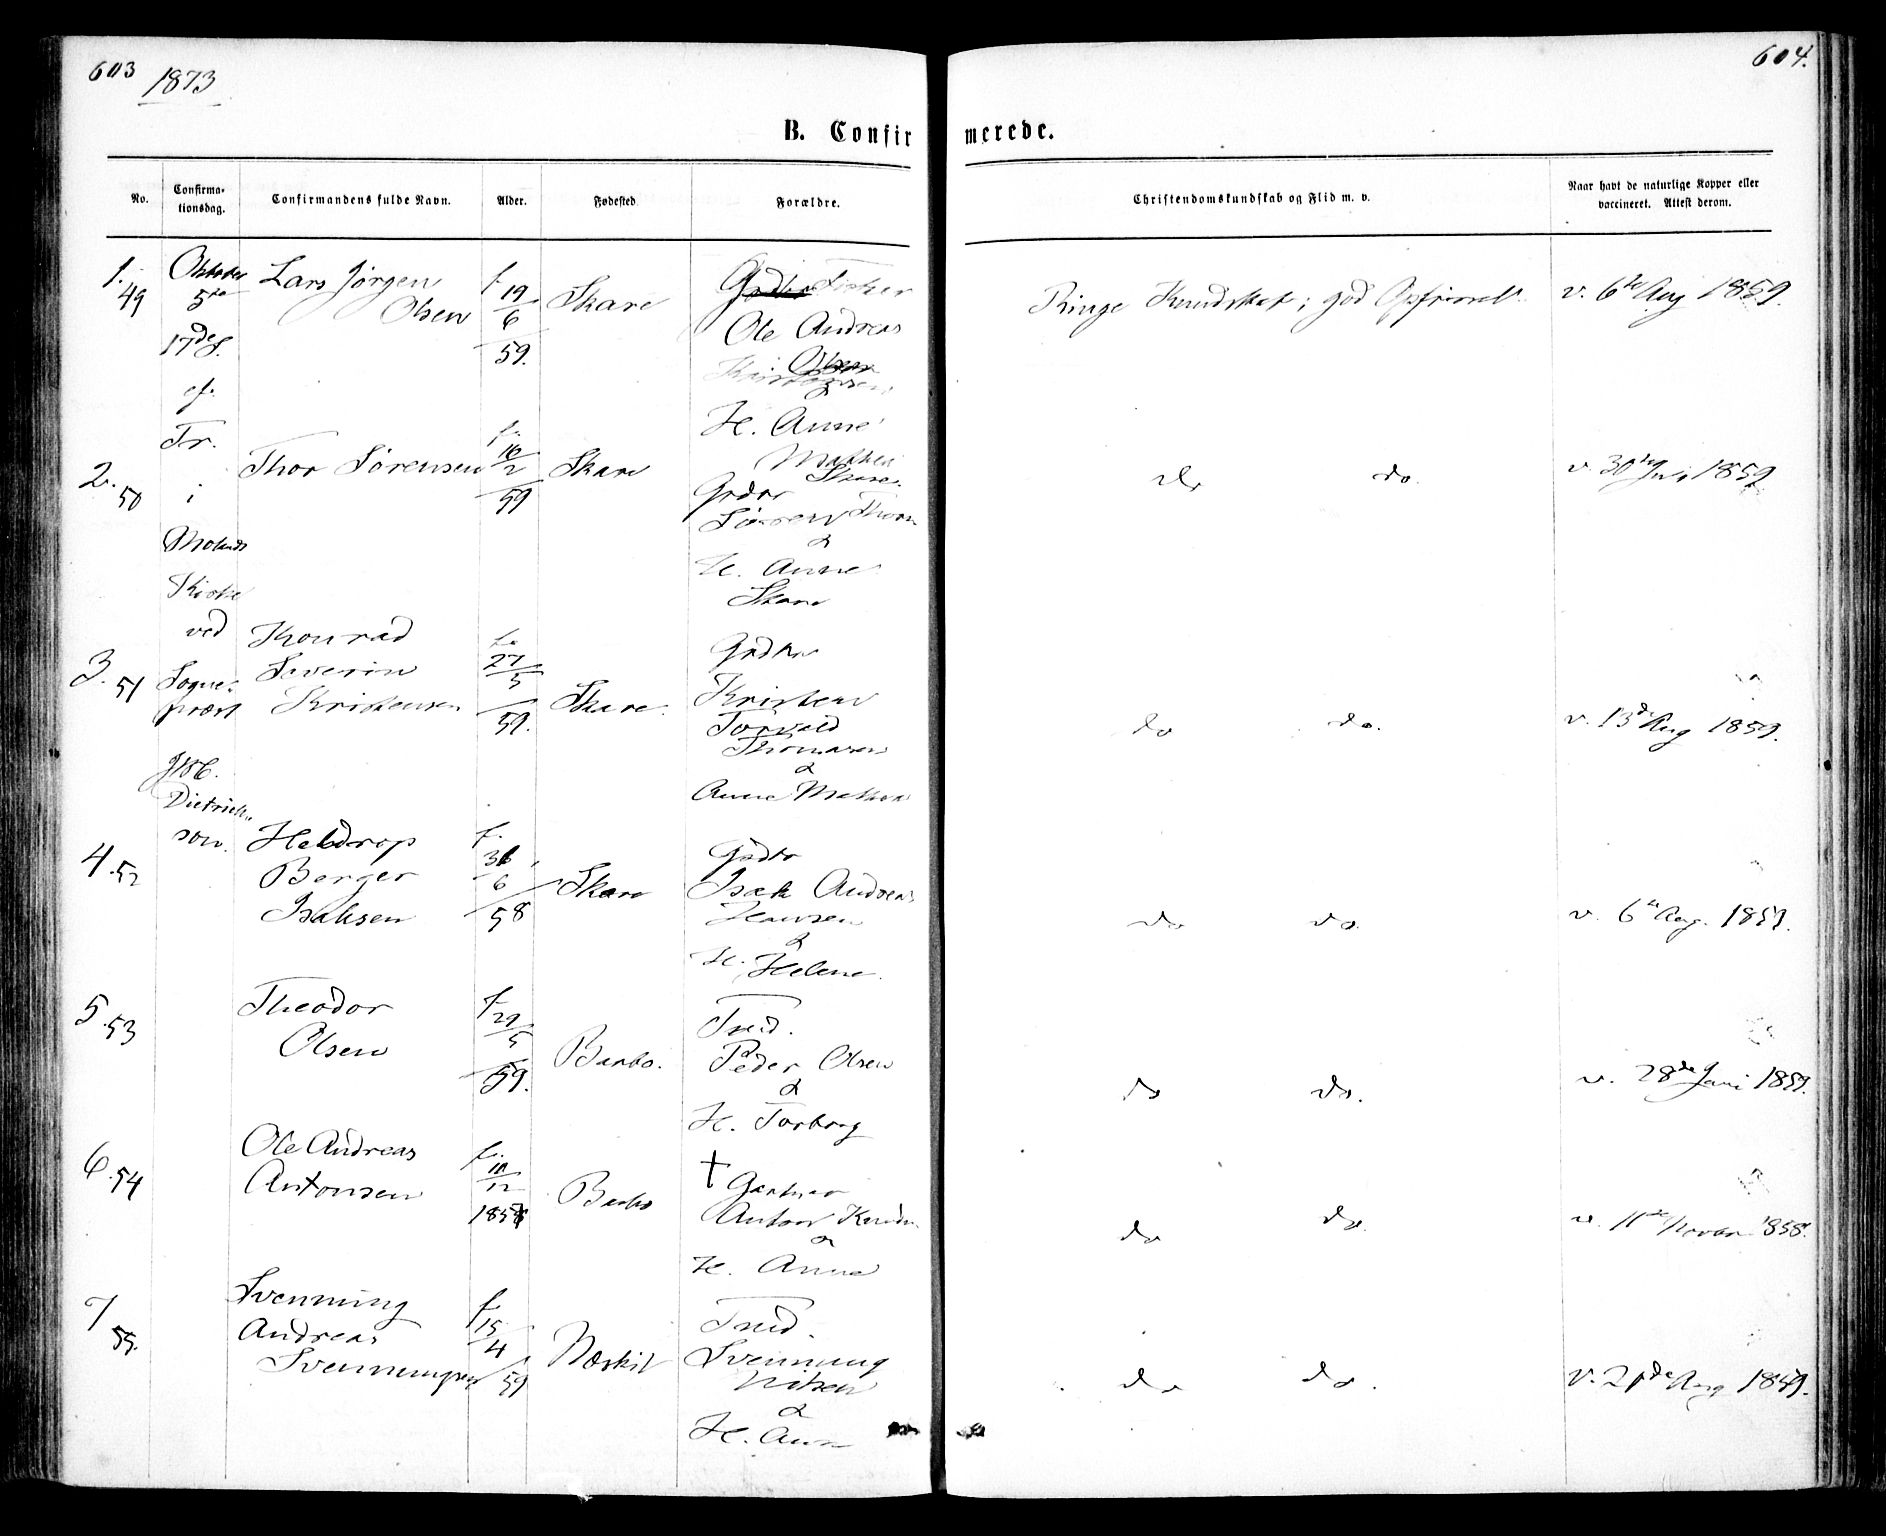 603
1873
604.
B. Confir
merede.
No.
Confirma-
tionsdag.
Confirmandens fulde Navn.
Alder.
Fødested
Forældre.
Christendomskundskab og Flid m. v.
Naar havt de naturlige Kopper eller
vaccineret. Attest derom.
1.
49
Oktober
5te
17de S.
ef.
Tr.
i
Molands
Kirke
ved
Sogne-
præst
Dietrich-
son.
Lars Jørgen
Olsen
f.
19
6
59.
Skare
Ole Andreas
H. Anne
Skare
Ringe Kundskab; god Opførsel
v. 6te Aug 1859.
2.
50
Thor Sørensen
f.
16
2
59
Skare
Grdbr
Søren Thors
&
H. Anne
Skare
do do.
v. 30te Juli 1859
3.
51
Konrad
Severin
Kristensen
f.
27
5
59.
Skare.
Grdbr
Kristen
Torvald
Thomasen
&
Anne
do do.
v. 13de Aug 1859.
4.
52
Heldrop
Berger
Isaksen
f.
6
58
Skare
Grdbr
Isak Andreas
Hansen
&
H. Helene.
do do
v. 6te Aug. 1859.
5.
53
Theodor
Olsen
f.
29
5
59.
Barbo.
Peder Olsen
&
H. Torborg
do do.
v. 28de Juni 1859.
6.
54
Ole Andreas
Antonsen
f.
12
1858
Barbo
†
Anton
&
H. Anne
do do.
v. 11te Novbr 1858.
7
55.
Svenning
Andreas
Svenningsen
f.
15
4
59
Næskil
Svenning
Nilsen
&
H. Anne
do do.
v. 21de Aug 1859.